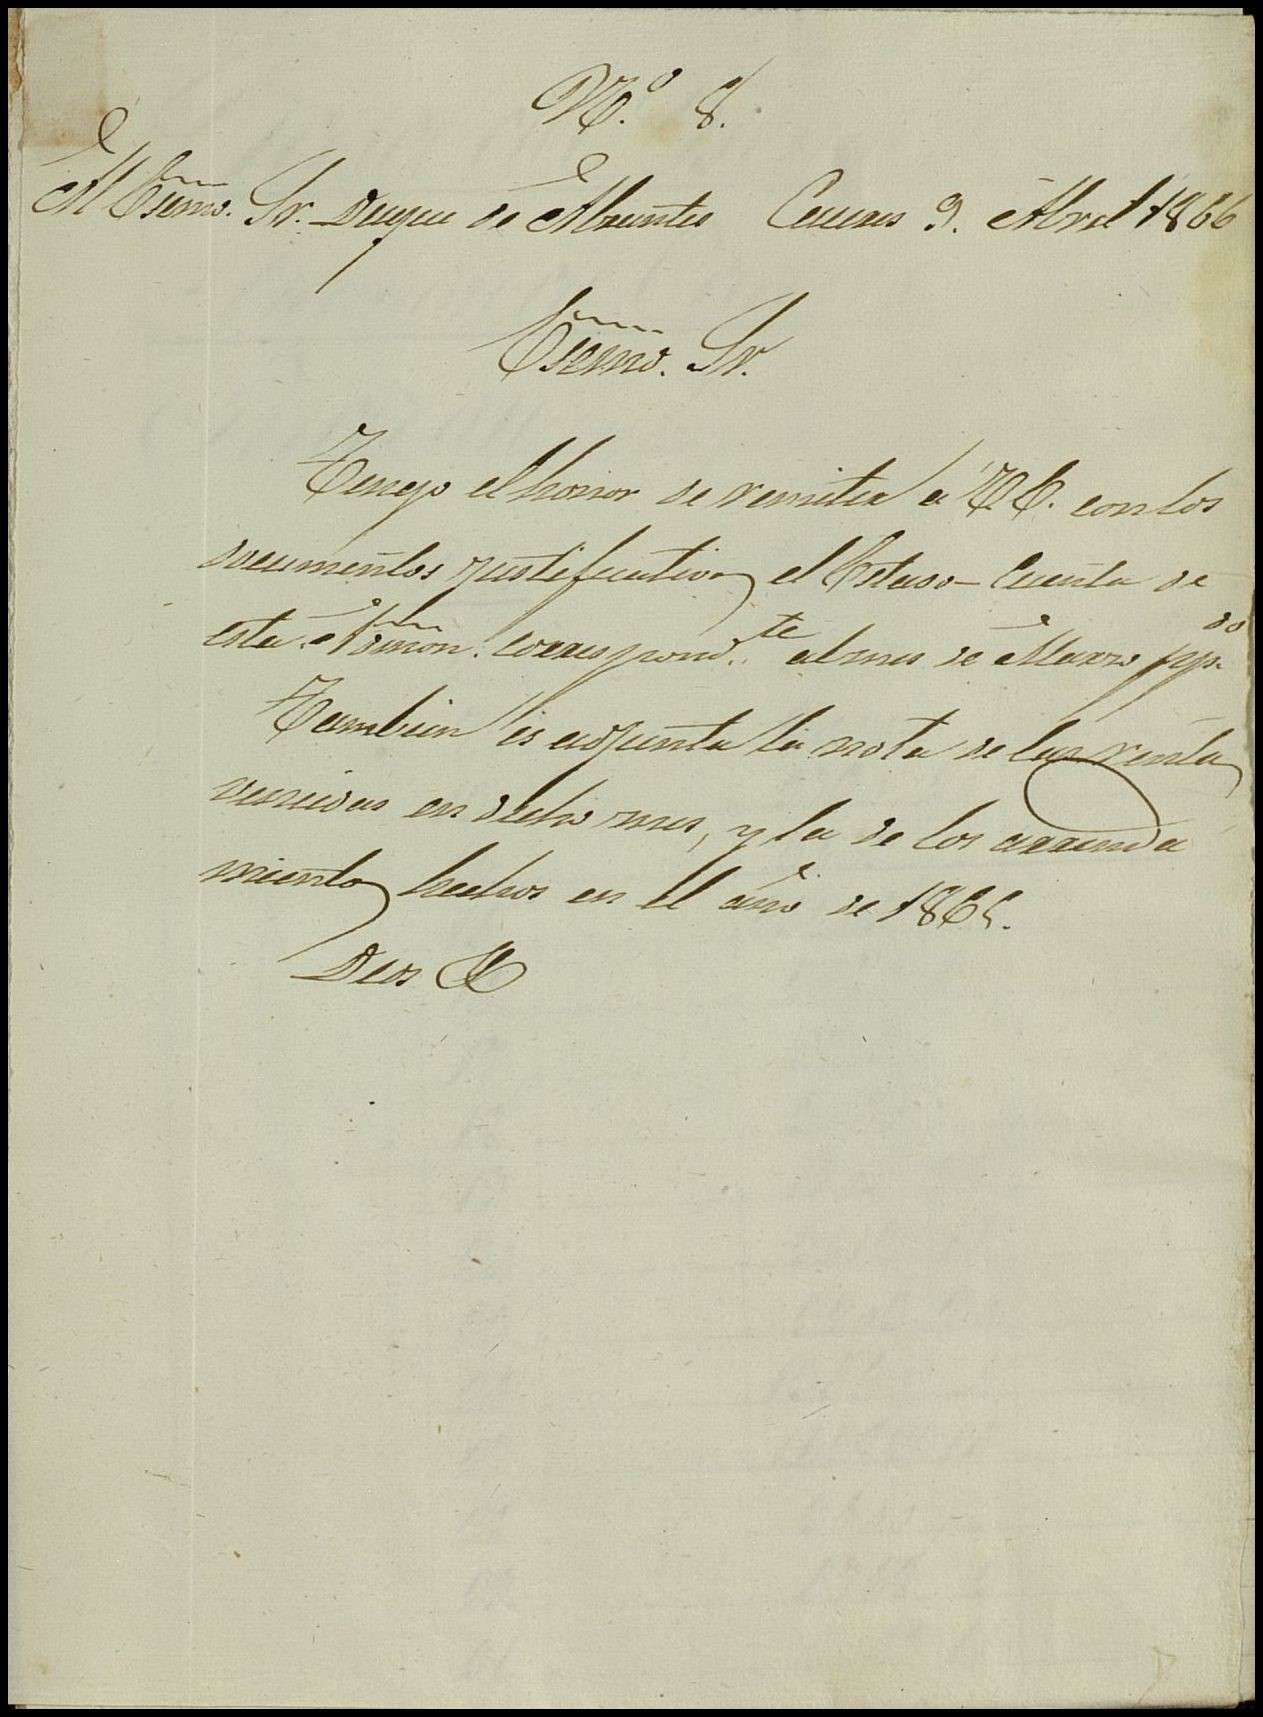 N.º 8.
Al Esemo. Sr. Duque de Abrantes Caceres 9. Abril 1866
Esemo. Sr.
Tengo el honor de remitir a V.E. con los
documentos justificativos el Estado-Cuenta de
esta Admon. correspond.te al mes de Marzo pp.do
Tambien es adjunta la nota de las rentas
vencidas en dicho mes, y la de los arrenda
mientos hechos en el año de 1865.
Dios &